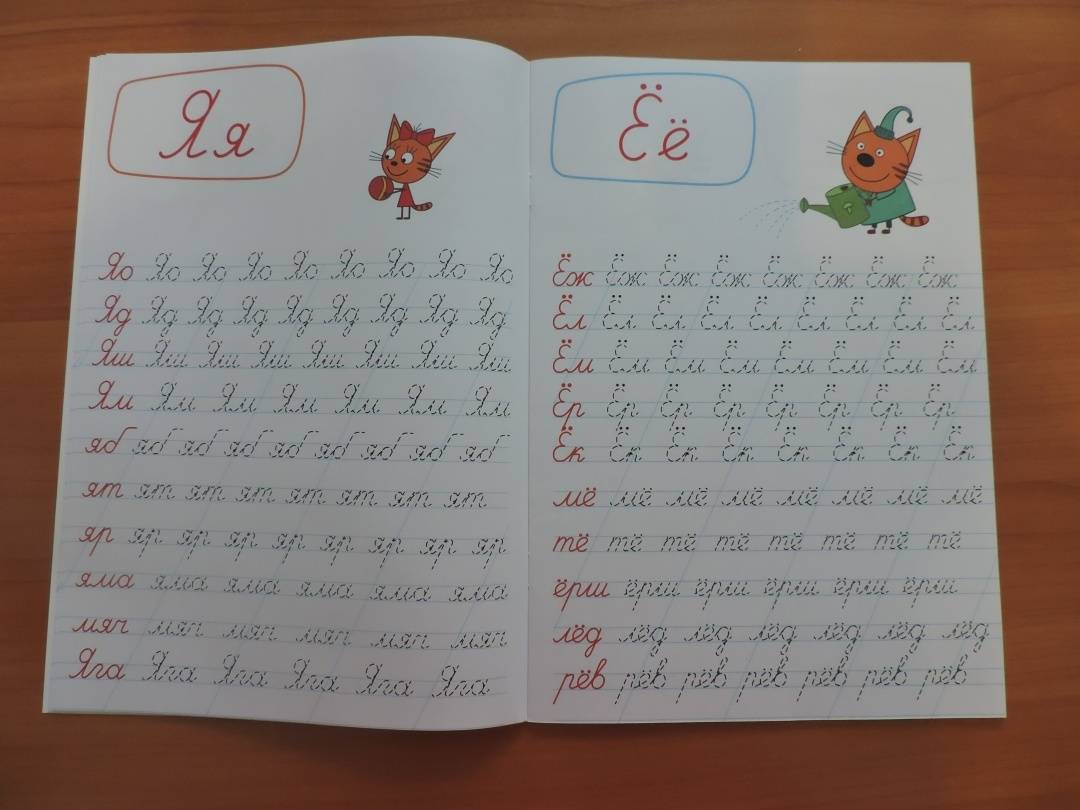 Я я
Яо Яо Яо Яо Яо Яо Яо Яо Яо
Яд Яд Яд Яд Яд Яд Яд Яд Яд
Яш Яш Яш Яш Яш Яш Яш Яш
Ям Ям Ям Ям Ям Ям Ям
яб яб яб яб яб яб яб яб яб
ят ят ят ят ят ят ят ят
яр яр яр яр яр яр яр яр яр
яма яма яма яма яма яма
мяч мяч мяч мяч мяч мяч
Яга Яга Яга Яга Яга Яга
Ё ё
Ёж Ёж Ёж Ёж Ёж Ёж Ёж Ёж
Ёл Ёл Ёл Ёл Ёл Ёл Ёл Ёл Ёл
Ём Ём Ём Ём Ём Ём Ём Ём Ём
Ёр Ёр Ёр Ёр Ёр Ёр Ёр Ёр
Ёк Ёк Ёк Ёк Ёк Ёк Ёк Ёк
мё мё мё мё мё мё мё мё
тё тё тё тё тё тё тё тё
ёрш ёрш ёрш ёрш ёрш ёрш
лёд лёд лёд лёд лёд лёд лёд
рёв рёв рёв рёв рёв рёв рёв